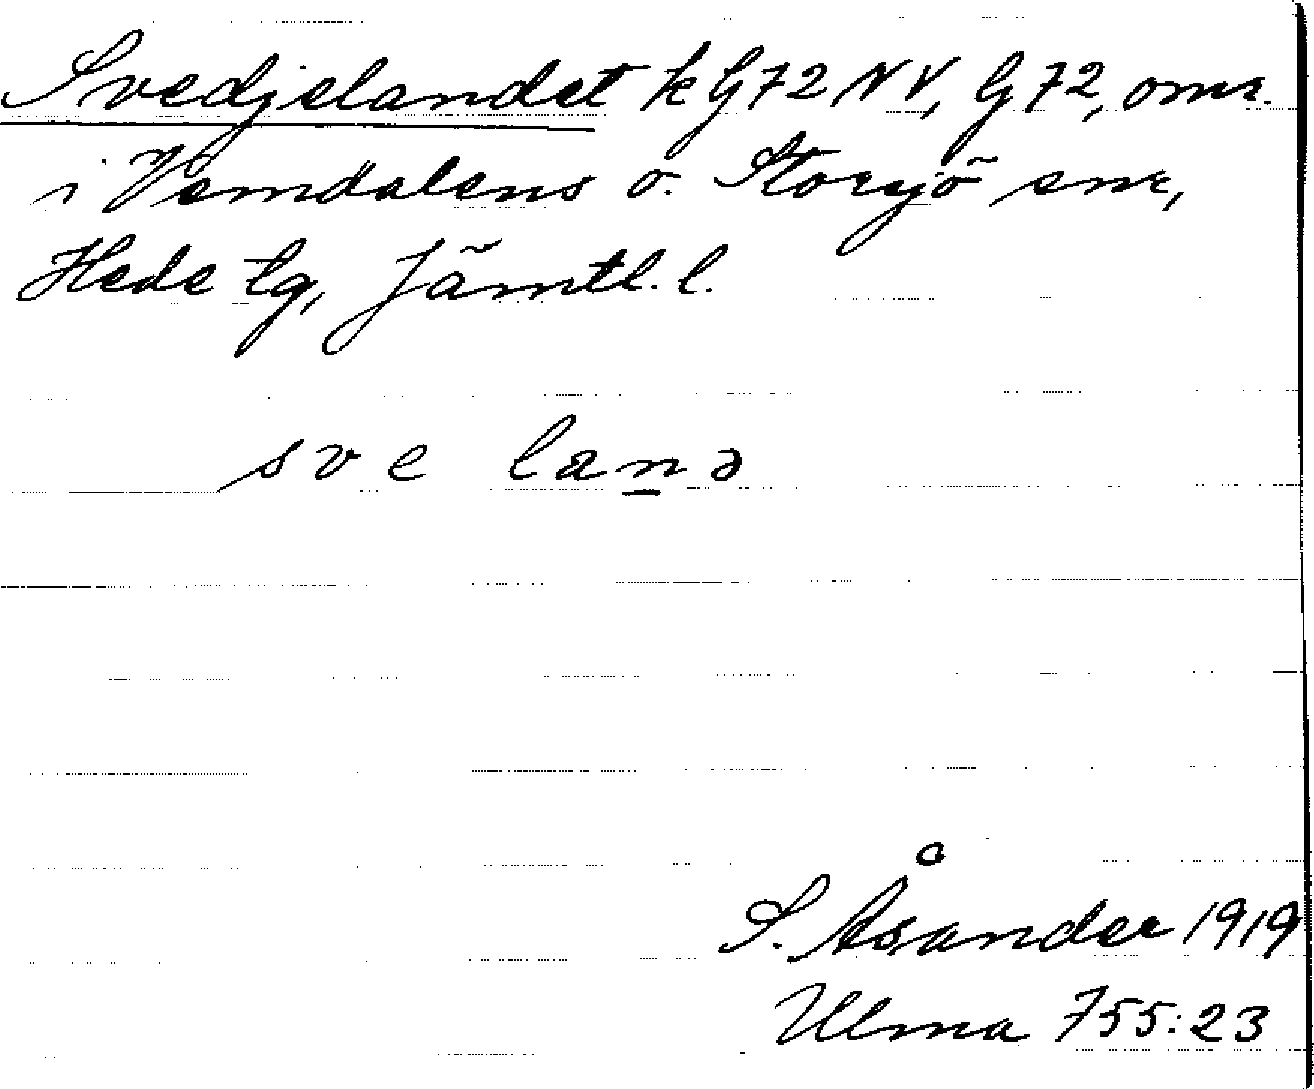 Svedjelandet k G72 NV, G72, omr.
i Vemdalens o. Storsjö snr,
Hede tg, Jämtl. l.
sve lanə
S. Åsander 1919
Ulma 755:23